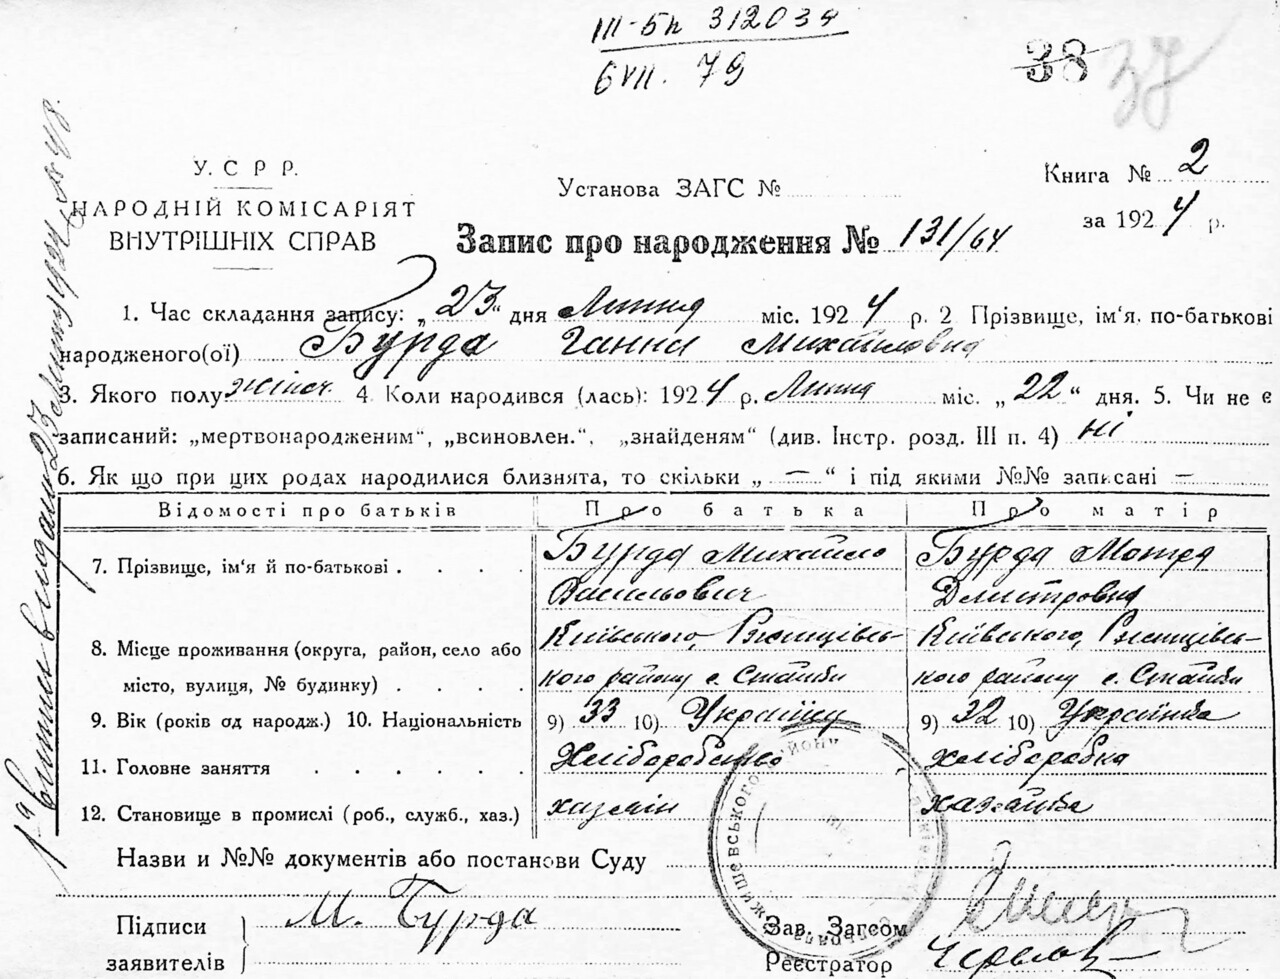 III-БП 312034
6 VII. 79
38 37
У. С Р Р.
НАРОДНІЙ КОМІСАРІЯТ
ВНУТРІШНІХ СПРАВ
Установа ЗАГС №
Книга № 2
за 1924 р.
Запис про народження № 131/64
1. Час складання запису: „23“ дня Липня міс. 1924 р. 2 Прізвище, ім'я, по-батькові
народженого(ої) Бурда Ганна Михайловна
3. Якого полу жіноч. 4. Коли народився (лась): 1924 р. Липня міс. „22“ дня. 5. Чи не є
записаний: „мертвонародженим“, „всиновлен.“, „знайденям“ (див. Інстр. розд. III п. 4) ні
6. Як що при цих родах народилися близнята, то скільки „ — “ і під якими №№ записані —
Відомості про батьків Про батька Про матір
7. Прізвище, ім'я й по-батькові . . . . Бурда Михайло Бурда Мотря
Васильович Дмитровна
8. Місце проживання (округа, район, село або Київського, Ржищівсь- Київського, Ржищівсь-
місто, вулиця, № будинку) . . . . кого району с. Стайки кого району с. Стайки
9. Вік (років од народж.) 10. Національність 9) 33 10) Українец 9) 32 10) Українка
11. Головне заняття . . . . . . Хліборобство хліборобка
12. Становище в промислі (роб., служб., хаз.) хазяїн хазяйка
Назви и №№ документів або постанови Суду
Підписи
заявителів
М. Бурда
Зав. Загсом
Реєстратор